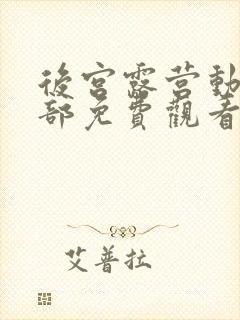 後宮露营動
部免費觀看
艾普拉